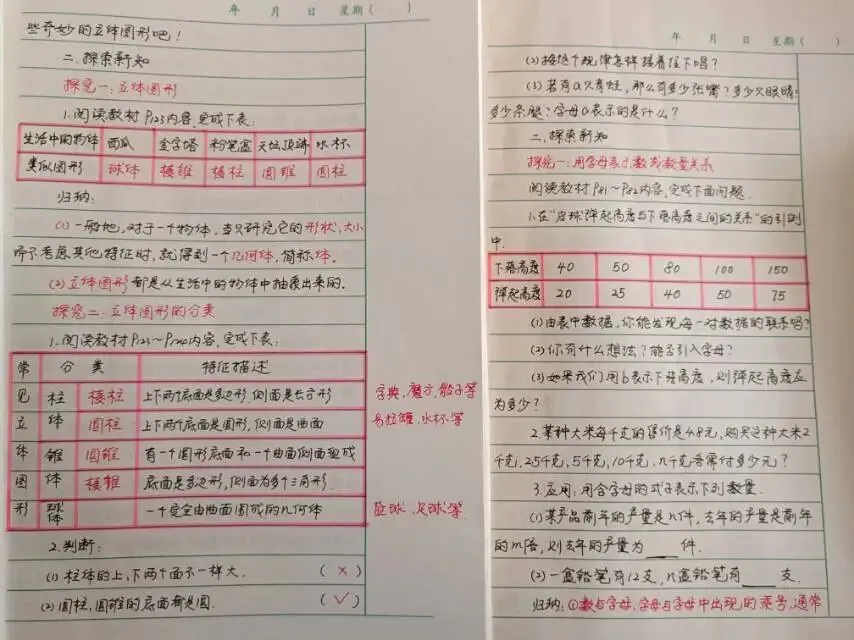 年 月 日 星期( )
些奇妙的立体图形吧!
二.探索新知
探究一:立体图形
1.阅读教材P123内容,完成下表:
生活中的物体 西瓜 金字塔 粉笔盒 天坛顶端 水杯
类似图形 球体 棱锥 棱柱 圆锥 圆柱
归纳:
(1)一般地,对于一个物体,当只研究它的形状,大小
而不考虑其他特征时,就得到一个几何体,简称体.
(2)立体图形都是从生活中的物体中抽象出来的.
探究二:立体图形的分类
1.阅读教材P123~P124内容,完成下表:
常 分类 特征描述
见 柱 棱柱 上下两个底面是多边形,侧面是长方形 字典,魔方,骰子等
立 体 圆柱 上下两个底面是圆形,侧面是曲面 易拉罐,水杯等
体 锥 圆锥 有一个圆形底面和一个曲面侧面组成
图 体 棱锥 底面是多边形,侧面为多个三角形.
形 球体 一个完全由曲面围成的几何体 足球等
2.判断:
(1)柱体的上,下两个面不一样大. (×)
(2)圆柱,圆锥的底面都是圆. (√)
年 月 日 星期( )
(2)按这个规律怎样接着往下唱?
(3)若有a只青蛙,那么有多少张嘴?多少只眼睛?
多少条腿?字母a表示的是什么?
二.探索新知
探究一:用字母表示数或数量关系
阅读教材P81~P82内容,完成下面问题.
1.在"皮球弹起高度与下落高度之间的关系"的引例
中.
下落高度 40 50 80 100 150
弹起高度 20 25 40 50 75
(1)由表中数据,你能发现每一对数据的联系吗?
(2)你有什么想法?能否引入字母?
(3)如果我们用b表示下落高度,则弹起高度应
为多少?
2.某种大米每千克的售价是4.8元,购买这种大米2
千克,2.5千克,5千克,10千克,n千克各需付多少元?
3.应用:用含字母的式子表示下列数量.
(1)某产品前年的产量是n件,去年的产量是前年
的m倍,则去年的产量为____件.
(2)一盒铅笔有12支,n盒铅笔有____支.
归纳:①数与字母,字母与字母中出现的乘号,通常